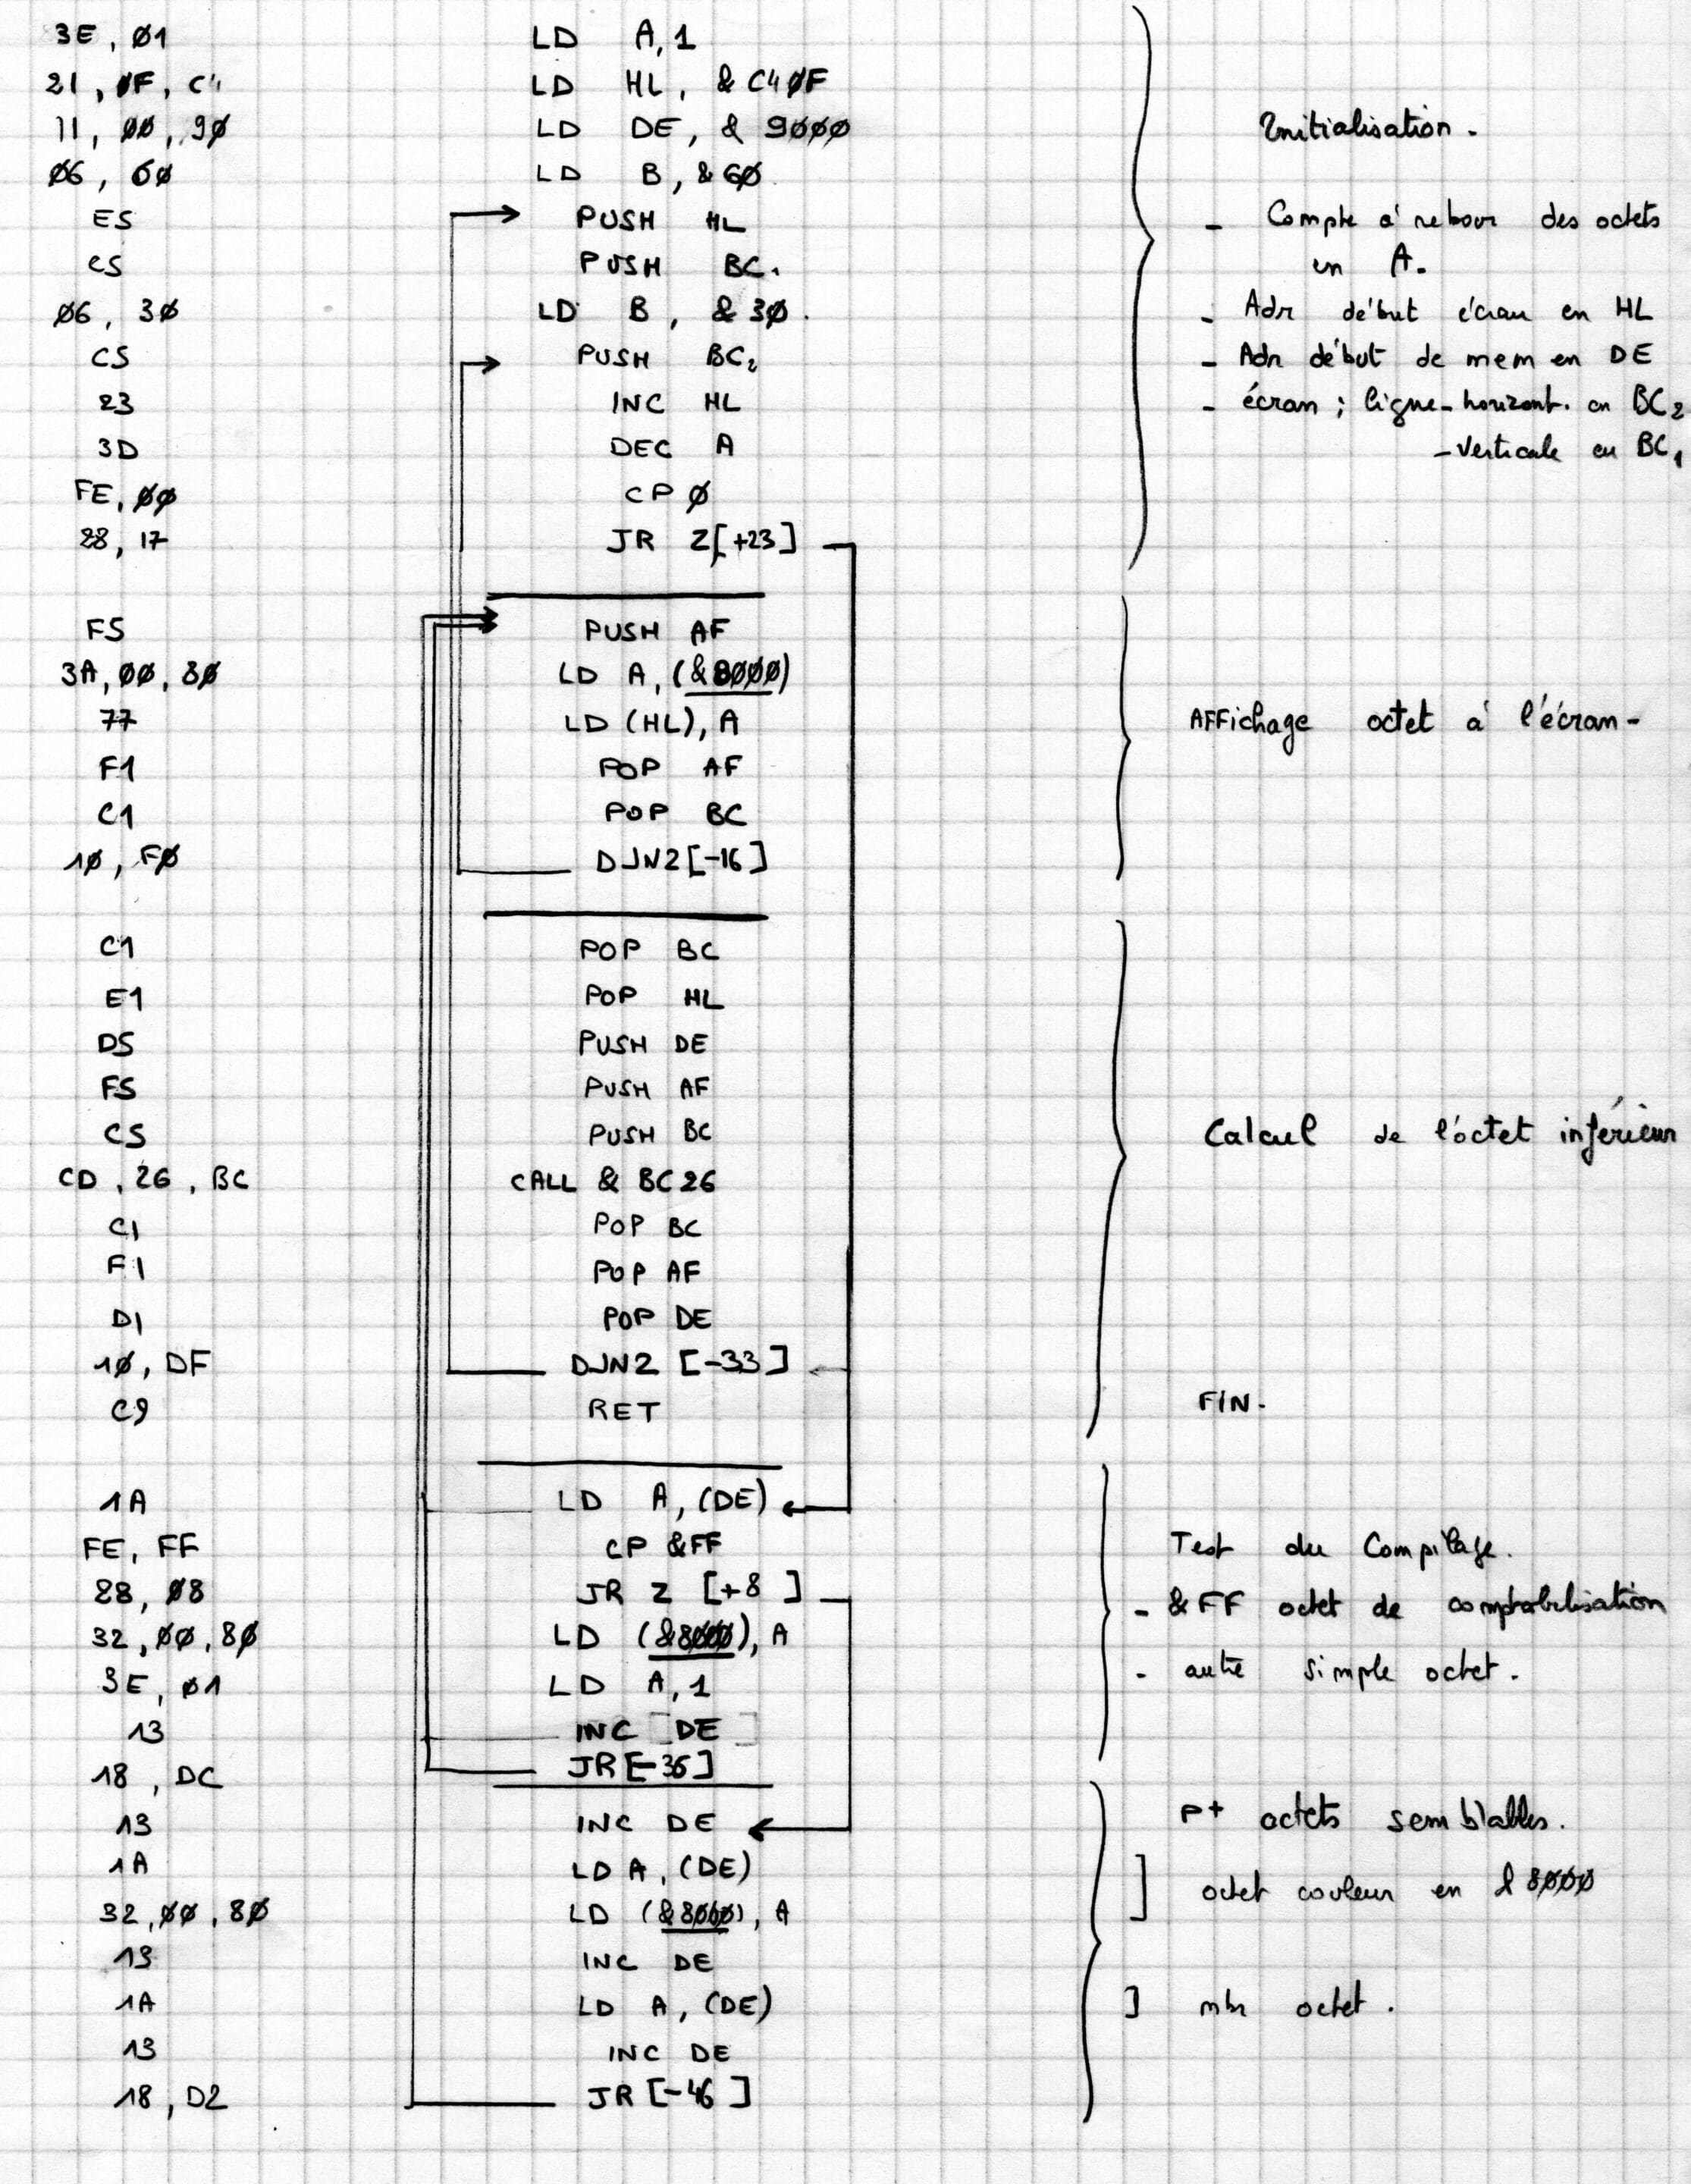 3E, Ø1 LD A, 1
21, ØF, C4 LD HL, & C4ØF
11, ØØ, 9Ø LD DE, & 9ØØØ Initialisation -
Ø6, 6Ø LD B, & 6Ø
E5 PUSH HL - Compte à rebour des octets
C5 PUSH BC1 en A.
Ø6, 3Ø LD B, & 3Ø. - Adr début écran en HL
C5 PUSH BC2 - Adr début de mem en DE
23 INC HL - écran ; ligne - horizont. en BC2
3D DEC A - Verticale en BC1
FE, ØØ CP Ø
28, 17 JR Z[+23]
F5 PUSH AF
3A, ØØ, 8Ø LD A, (&8ØØØ)
77 LD (HL), A AFFichage octet à l'écran -
F1 POP AF
C1 POP BC
1Ø, FØ DJNZ[-16]
C1 POP BC
E1 POP HL
D5 PUSH DE
F5 PUSH AF
C5 PUSH BC Calcul de l'octet inférieur
CD, 26, BC CALL & BC26
C1 POP BC
F1 POP AF
D1 POP DE
1Ø, DF DJNZ [-33]
C9 RET FIN.
1A LD A, (DE)
FE, FF CP &FF Test du Compilage.
28, Ø8 JR Z [+8] - &FF octet de comptabilisation
32, ØØ, 8Ø LD (&8ØØØ), A
3E, Ø1 LD A, 1 - autre simple octet.
13 INC [DE]
18, DC JR[-36]
13 INC DE P+ octets semblables.
1A LD A, (DE)
32, ØØ, 8Ø LD (&8ØØØ), A ] octet couleur en & 8ØØØ
13 INC DE
1A LD A, (DE) ] nbr octet.
13 INC DE
18, D2 JR [-46]